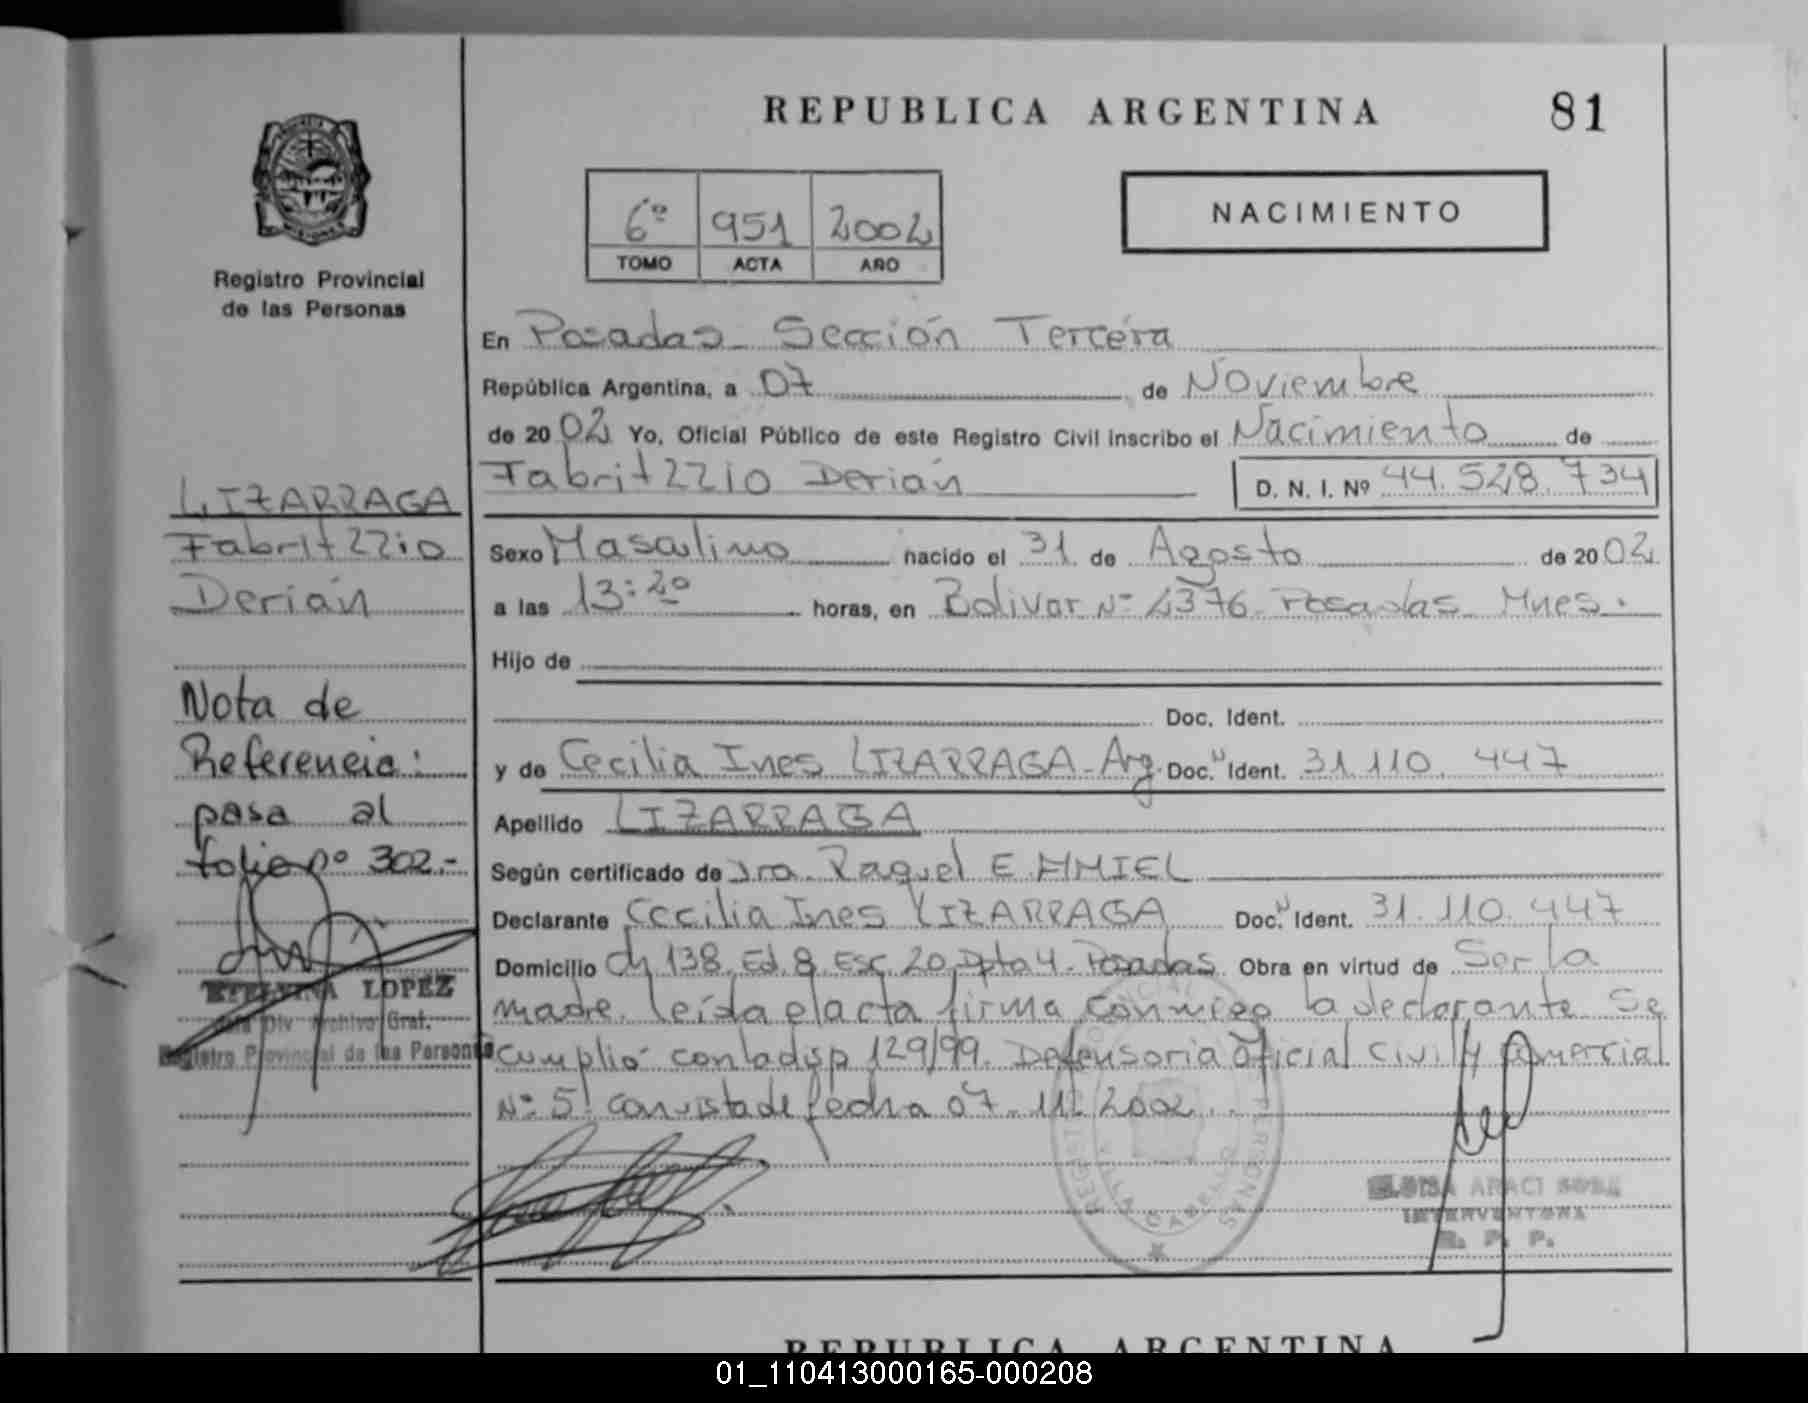 REPUBLICA ARGENTINA
81
6º 951 2002
TOMO ACTA AÑO
NACIMIENTO
Registro Provincial
de las Personas
En Posadas Sección Tercera
República Argentina, a 07 de Noviembre
de 2002 Yo, Oficial Público de este Registro Civil inscribo el Nacimiento de
Fabritzzio Derián D. N. I. Nº 44.528.734
Sexo Masculino nacido el 31 de Agosto de 2002
a las 13:20 horas, en Bolivar Nº 2376 Posadas Mnes.
Hijo de
Doc. Ident.
y de Cecilia Ines LIZARRAGA - Arg. Doc. Ident. 31.110.447
Apellido LIZARRAGA
Según certificado de Dra. Raquel E. AMIEL
Declarante Cecilia Ines LIZARRAGA Doc. Ident. 31.110.447
Domicilio Ch 138 Ed 8 Esc 20 Dpto 4 - Posadas Obra en virtud de Ser la
madre. leída el acta firma conmigo la declarante Se
cumplió con la disp 129/99. Defensoria Oficial Civil y Comercial
Nº 5 con vista de fecha 07.11.2002.
LIZARRAGA
Fabritzzio
Derián
Nota de
Referencia:
pasa al
folio nº 302.-
ETELVINA LOPEZ
Div Archivo Graf.
Registro Provincial de las Personas
VILLA CABELLO
ARACI SOSA
INTERVENTORA
R. P. P.
REPUBLICA ARGENTINA
01_110413000165-000208